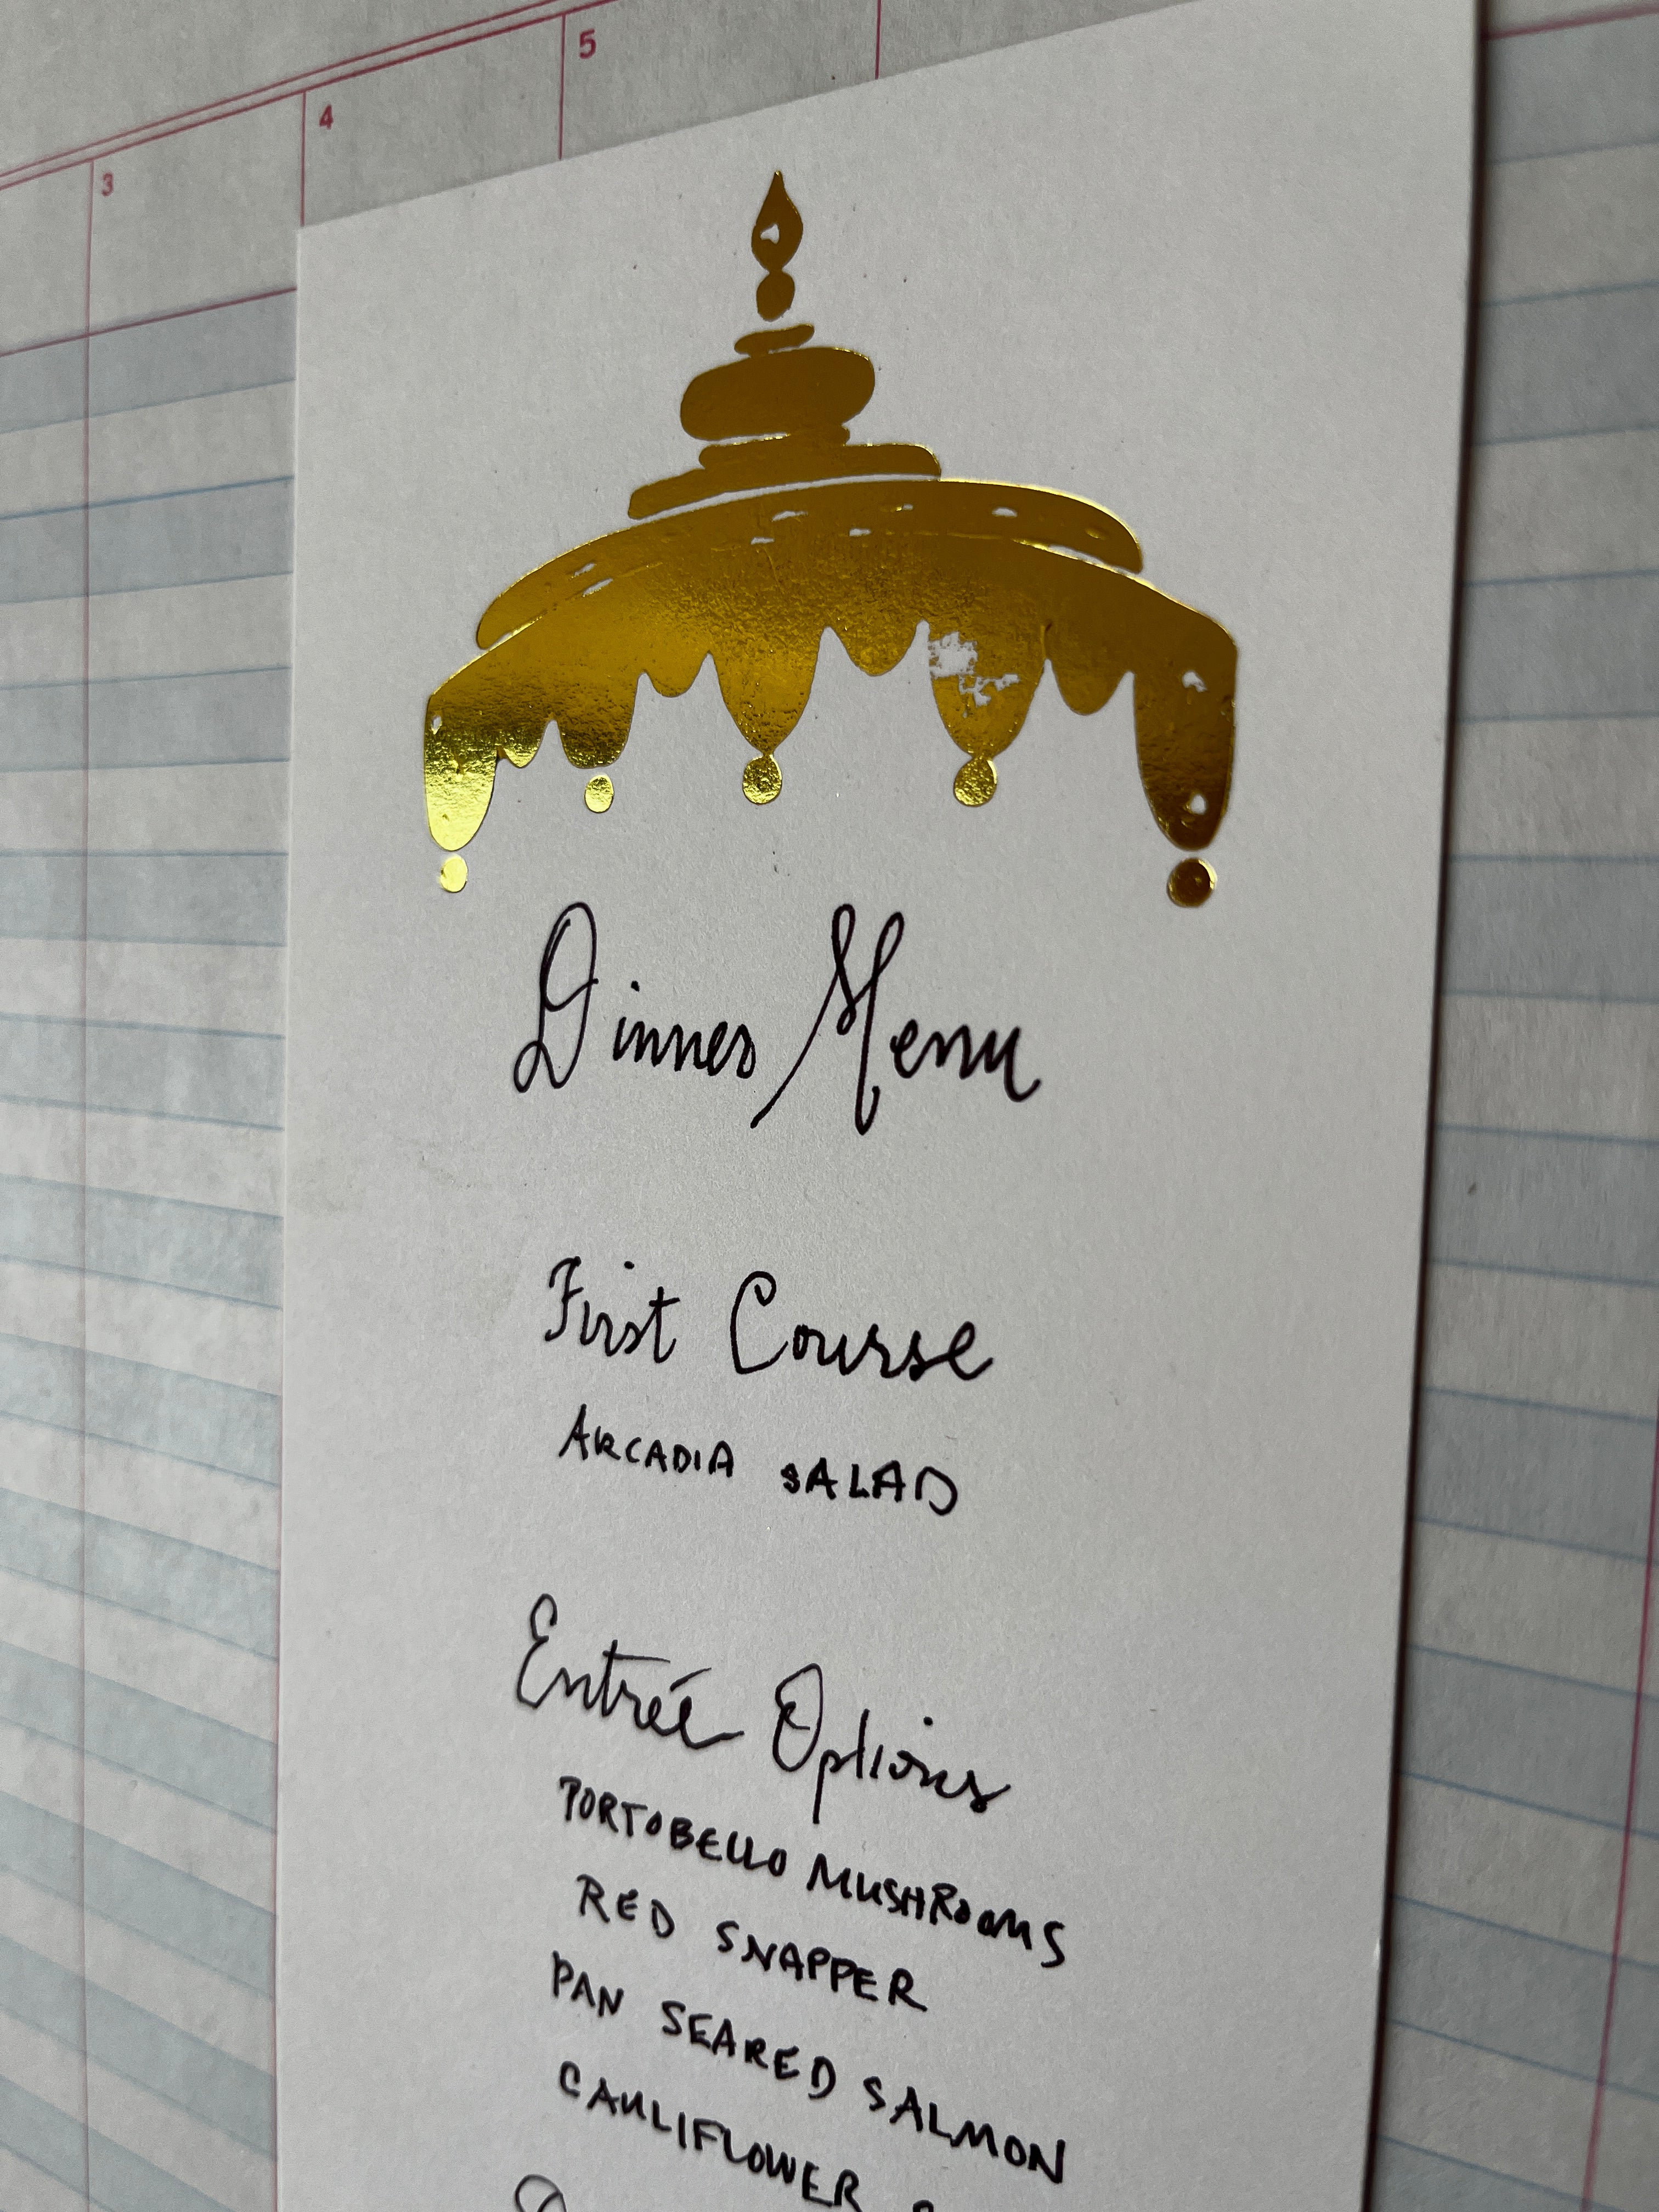 3 4 5
Dinner Menu
First Course
ARCADIA SALAD
Entrée Options
PORTOBELLO MUSHROOMS
RED SNAPPER
PAN SEARED SALMON
CAULIFLOWER